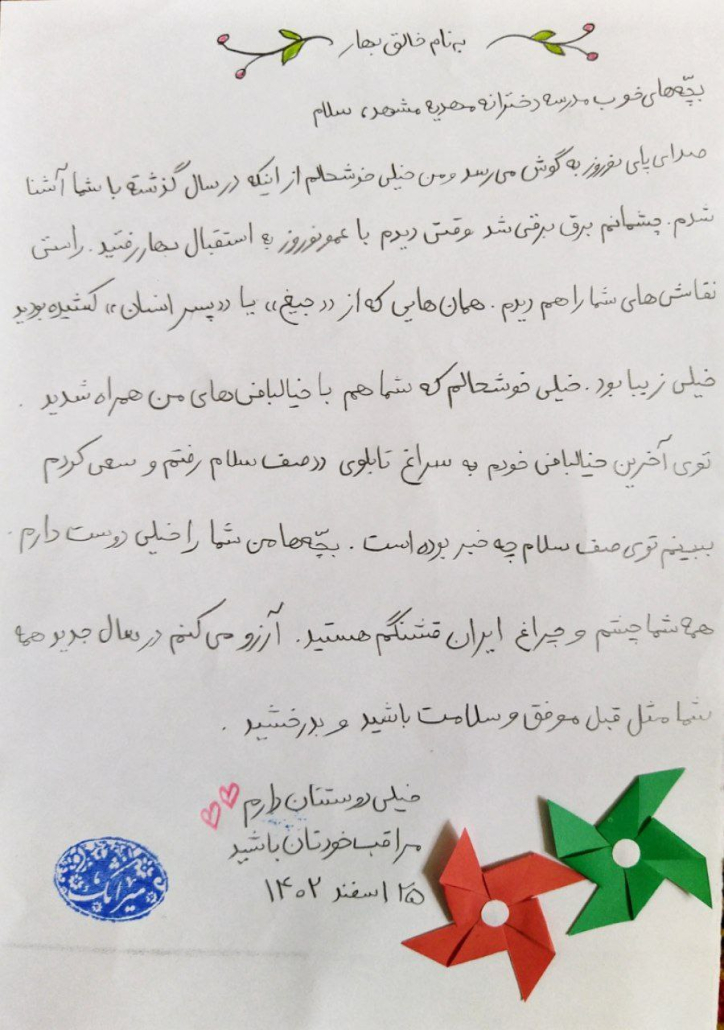 به نام خالق بهار
بچّه‌های خوب مدرسه دخترانه مهدیه مشهد، سلام
صدای پای نوروز به گوش می‌رسد و من خیلی خوشحالم از اینکه در سال گذشته با شما آشنا
شدم. چشمانم برق برقی شد وقتی دیدم با عمو نوروز به استقبال بهار رفتید. راستی
نقاشی‌های شما را هم دیدم. همان‌هایی که از «جیغ» یا «پسر انسان» کشیده بودید
خیلی زیبا بود. خیلی خوشحالم که شما هم با خیالبافی‌های من همراه شدید.
توی آخرین خیالبافی خودم به سراغ تابلوی «صف سلام رفتم و سعی کردم
ببینم توی صف سلام چه خبر بوده است. بچّه‌ها من شما را خیلی دوست دارم.
همه شما چشم و چراغ ایران قشنگم هستید. آرزو می‌کنم در سال جدید همه
شما مثل قبل موفق و سلامت باشید و بدرخشید.
خیلی دوستتان دارم
مراقب خودتان باشید
۲۵ اسفند ۱۴۰۲